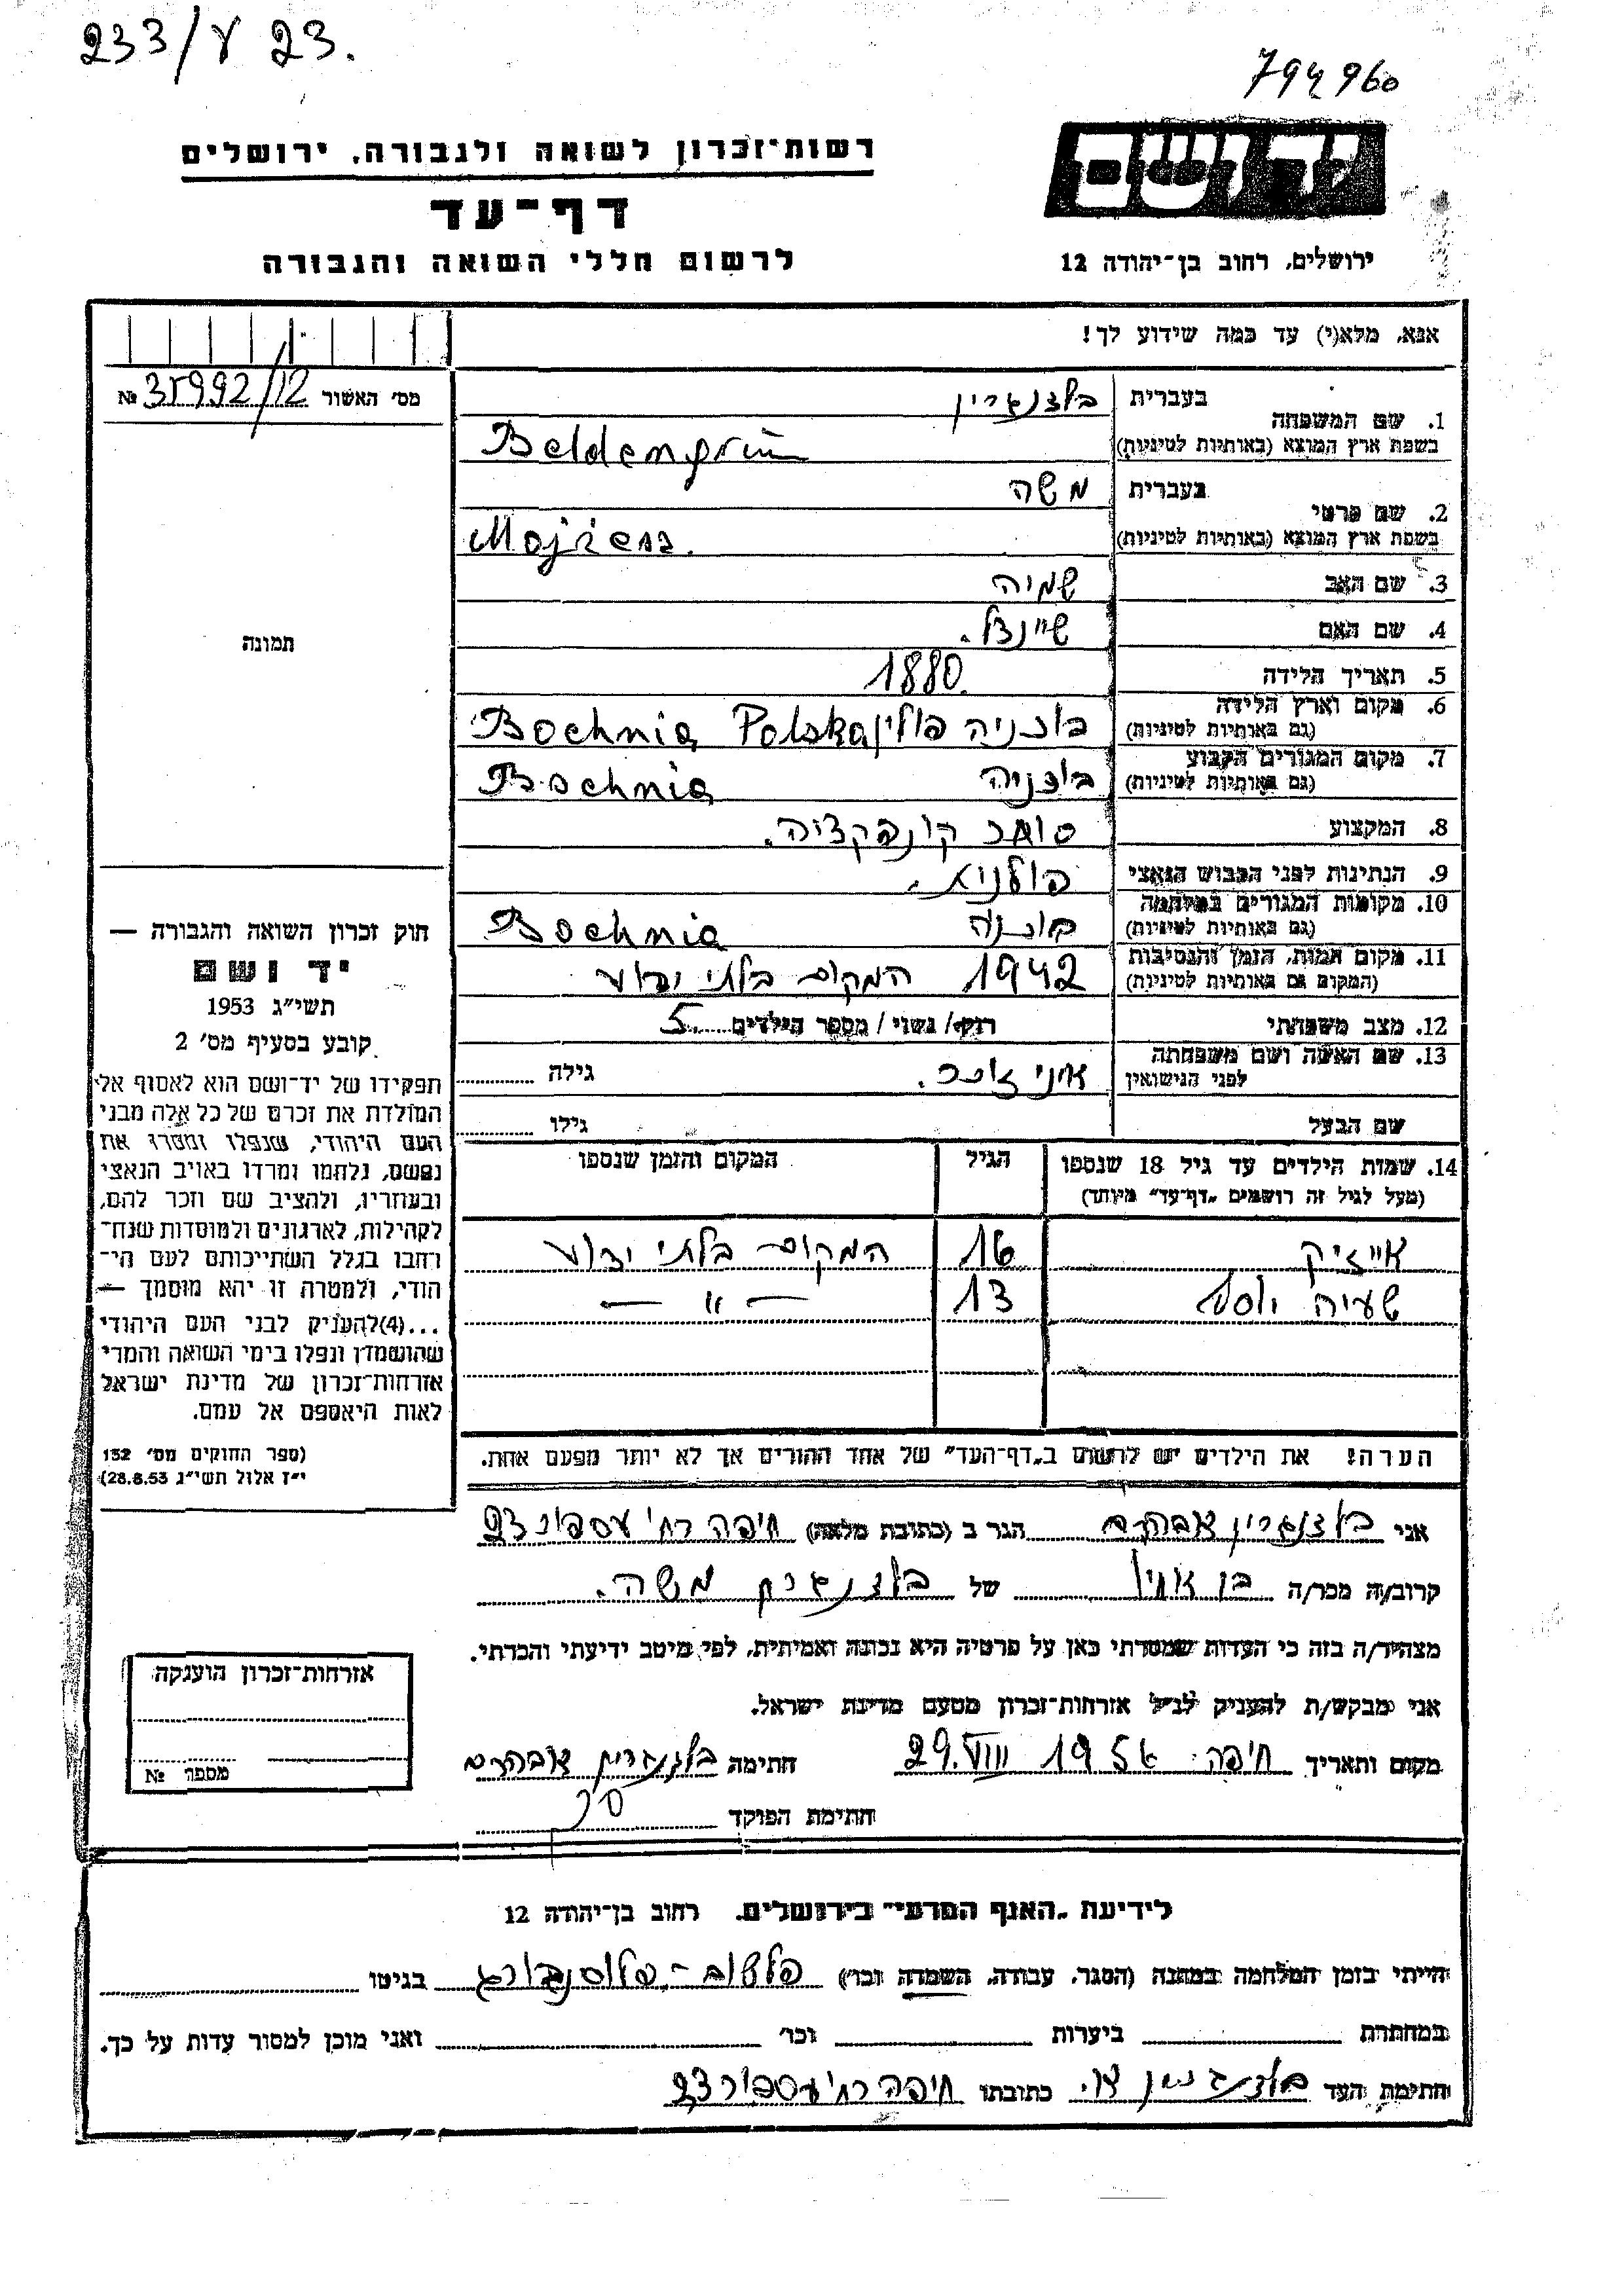 233/ע 23.
794960
רשות־זכרון לשואה ולגבורה, ירושלים
דף־עד
לרשום חללי השואה והגבורה
יד ושם
ירושלים, רחוב בן־יהודה 12
אנא, מלא(י) עד כמה שידוע לך!
מס׳ האשור 35992/12 №
תמונה
חוק זכרון השואה והגבורה —
יד ושם
תשי״ג 1953
קובע בסעיף מס׳ 2
תפקידו של יד־ושם הוא לאסוף אל
המולדת את זכרם של כל אלה מבני
העם היהודי, שנפלו ומסרו את
נפשם, נלחמו ומרדו באויב הנאצי
ובעוזריו, ולהציב שם וזכר להם,
לקהילות, לארגונים ולמוסדות שנח־
רבו בגלל השתייכותם לעם הי־
הודי, ולמטרה זו יהא מוסמך —
...(4)להעניק לבני העם היהודי
שהושמדו ונפלו בימי השואה והמרי
אזרחות־זכרון של מדינת ישראל
לאות היאספם אל עמם.
(ספר החוקים מס׳ 132
י״ז אלול תשי״ג 28.8.53)
1. שם המשפחה בעברית בלדנגרין
בשפת ארץ המוצא (באותיות לטיניות) Beldengrün
2. שם פרטי בעברית משה
בשפת ארץ המוצא (באותיות לטיניות) Mojżesz
3. שם האב שמיה
4. שם האם שיינדל.
5. תאריך הלידה 1880.
6. מקום וארץ הלידה
(גם באותיות לטיניות) בוכניה פולין Bochnia Polska
7. מקום המגורים הקבוע
(גם באותיות לטיניות) בוכניה Bochnia
8. המקצוע סוחר קונפקציה.
9. הנתינות לפני הכבוש הנאצי פולנית.
10. מקומות המגורים במלחמה
(גם באותיות לטיניות) בוכניה Bochnia
11. מקום המות, הזמן והנסיבות
(המקום גם באותיות לטיניות) 1942 המקום בלתי ידוע
12. מצב משפחתי רוק/ נשוי / מספר הילדים 5
13. שם האשה ושם משפחתה
לפני הנישואין גילה
שם הבעל גילו
14. שמות הילדים עד גיל 18 שנספו הגיל המקום והזמן שנספו
(מעל לגיל זה רושמים „דף־עד״ מיוחד)
אייזיק 16 המקום בלתי ידוע
שעיה יוסף 13 — ״ —
הערה! את הילדים יש לרשום ב„דף־העד״ של אחד ההורים אך לא יותר מפעם אחת.
אני בלדנגרין אברהם הגר ב (כתובת מלאה) חיפה רח׳ 23
קרוב/ה מכר/ה בן אחיו של בלדנגרין משה.
מצהיר/ה בזה כי העדות שמסרתי כאן על פרטיה היא נכונה ואמיתית, לפי מיטב ידיעתי והכרתי.
אני מבקש/ת להעניק לנ״ל אזרחות־זכרון מטעם מדינת ישראל.
מקום ותאריך חיפה 29.VIII 1956 חתימה בלדנגרין אברהם
חתימת הפוקד
אזרחות־זכרון הוענקה
מספר №
לידיעת „האגף המדעי״ בירושלים, רחוב בן־יהודה 12
הייתי בזמן המלחמה במחנה (הסגר, עבודה, השמדה וכו׳) פלשוב - פלוסנבורג בגיטו
במחתרת ביערות וכו׳ ואני מוכן למסור עדות על כך.
חתימת העד בלדנגרין א. כתובתו חיפה רח׳ 23